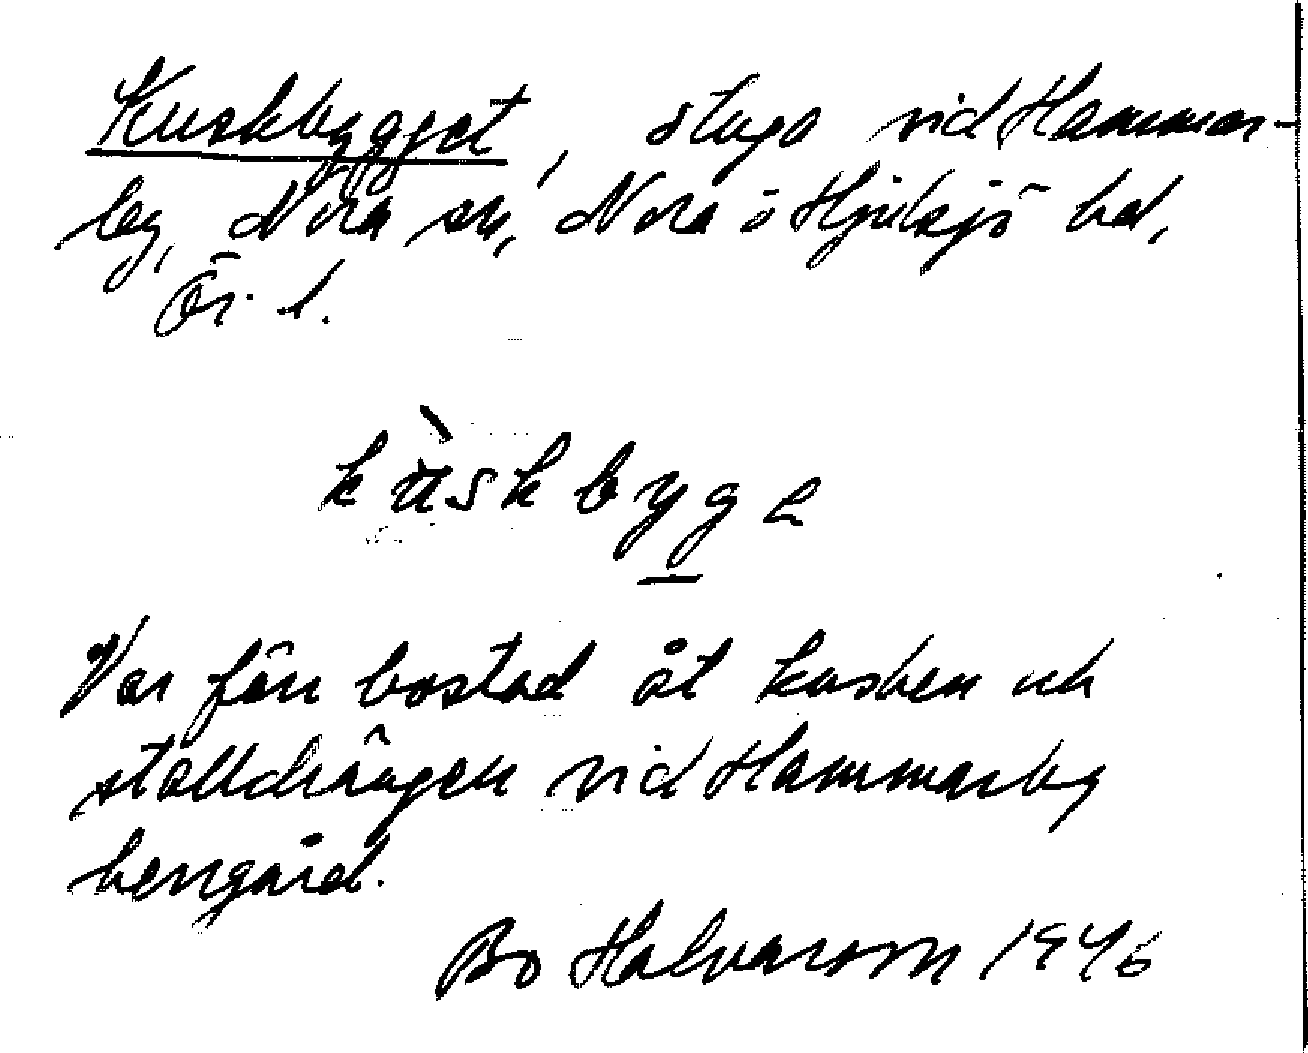 Kuskbygget, stuga vid Hammar-
by, Nora sn, Nora o Hjulsjö bd,
Ör. l.
kùskbyge
Var förr bostad åt kusken och
stalldrängen vid Hammarby
herrgård.
Bo Halvarson 1946